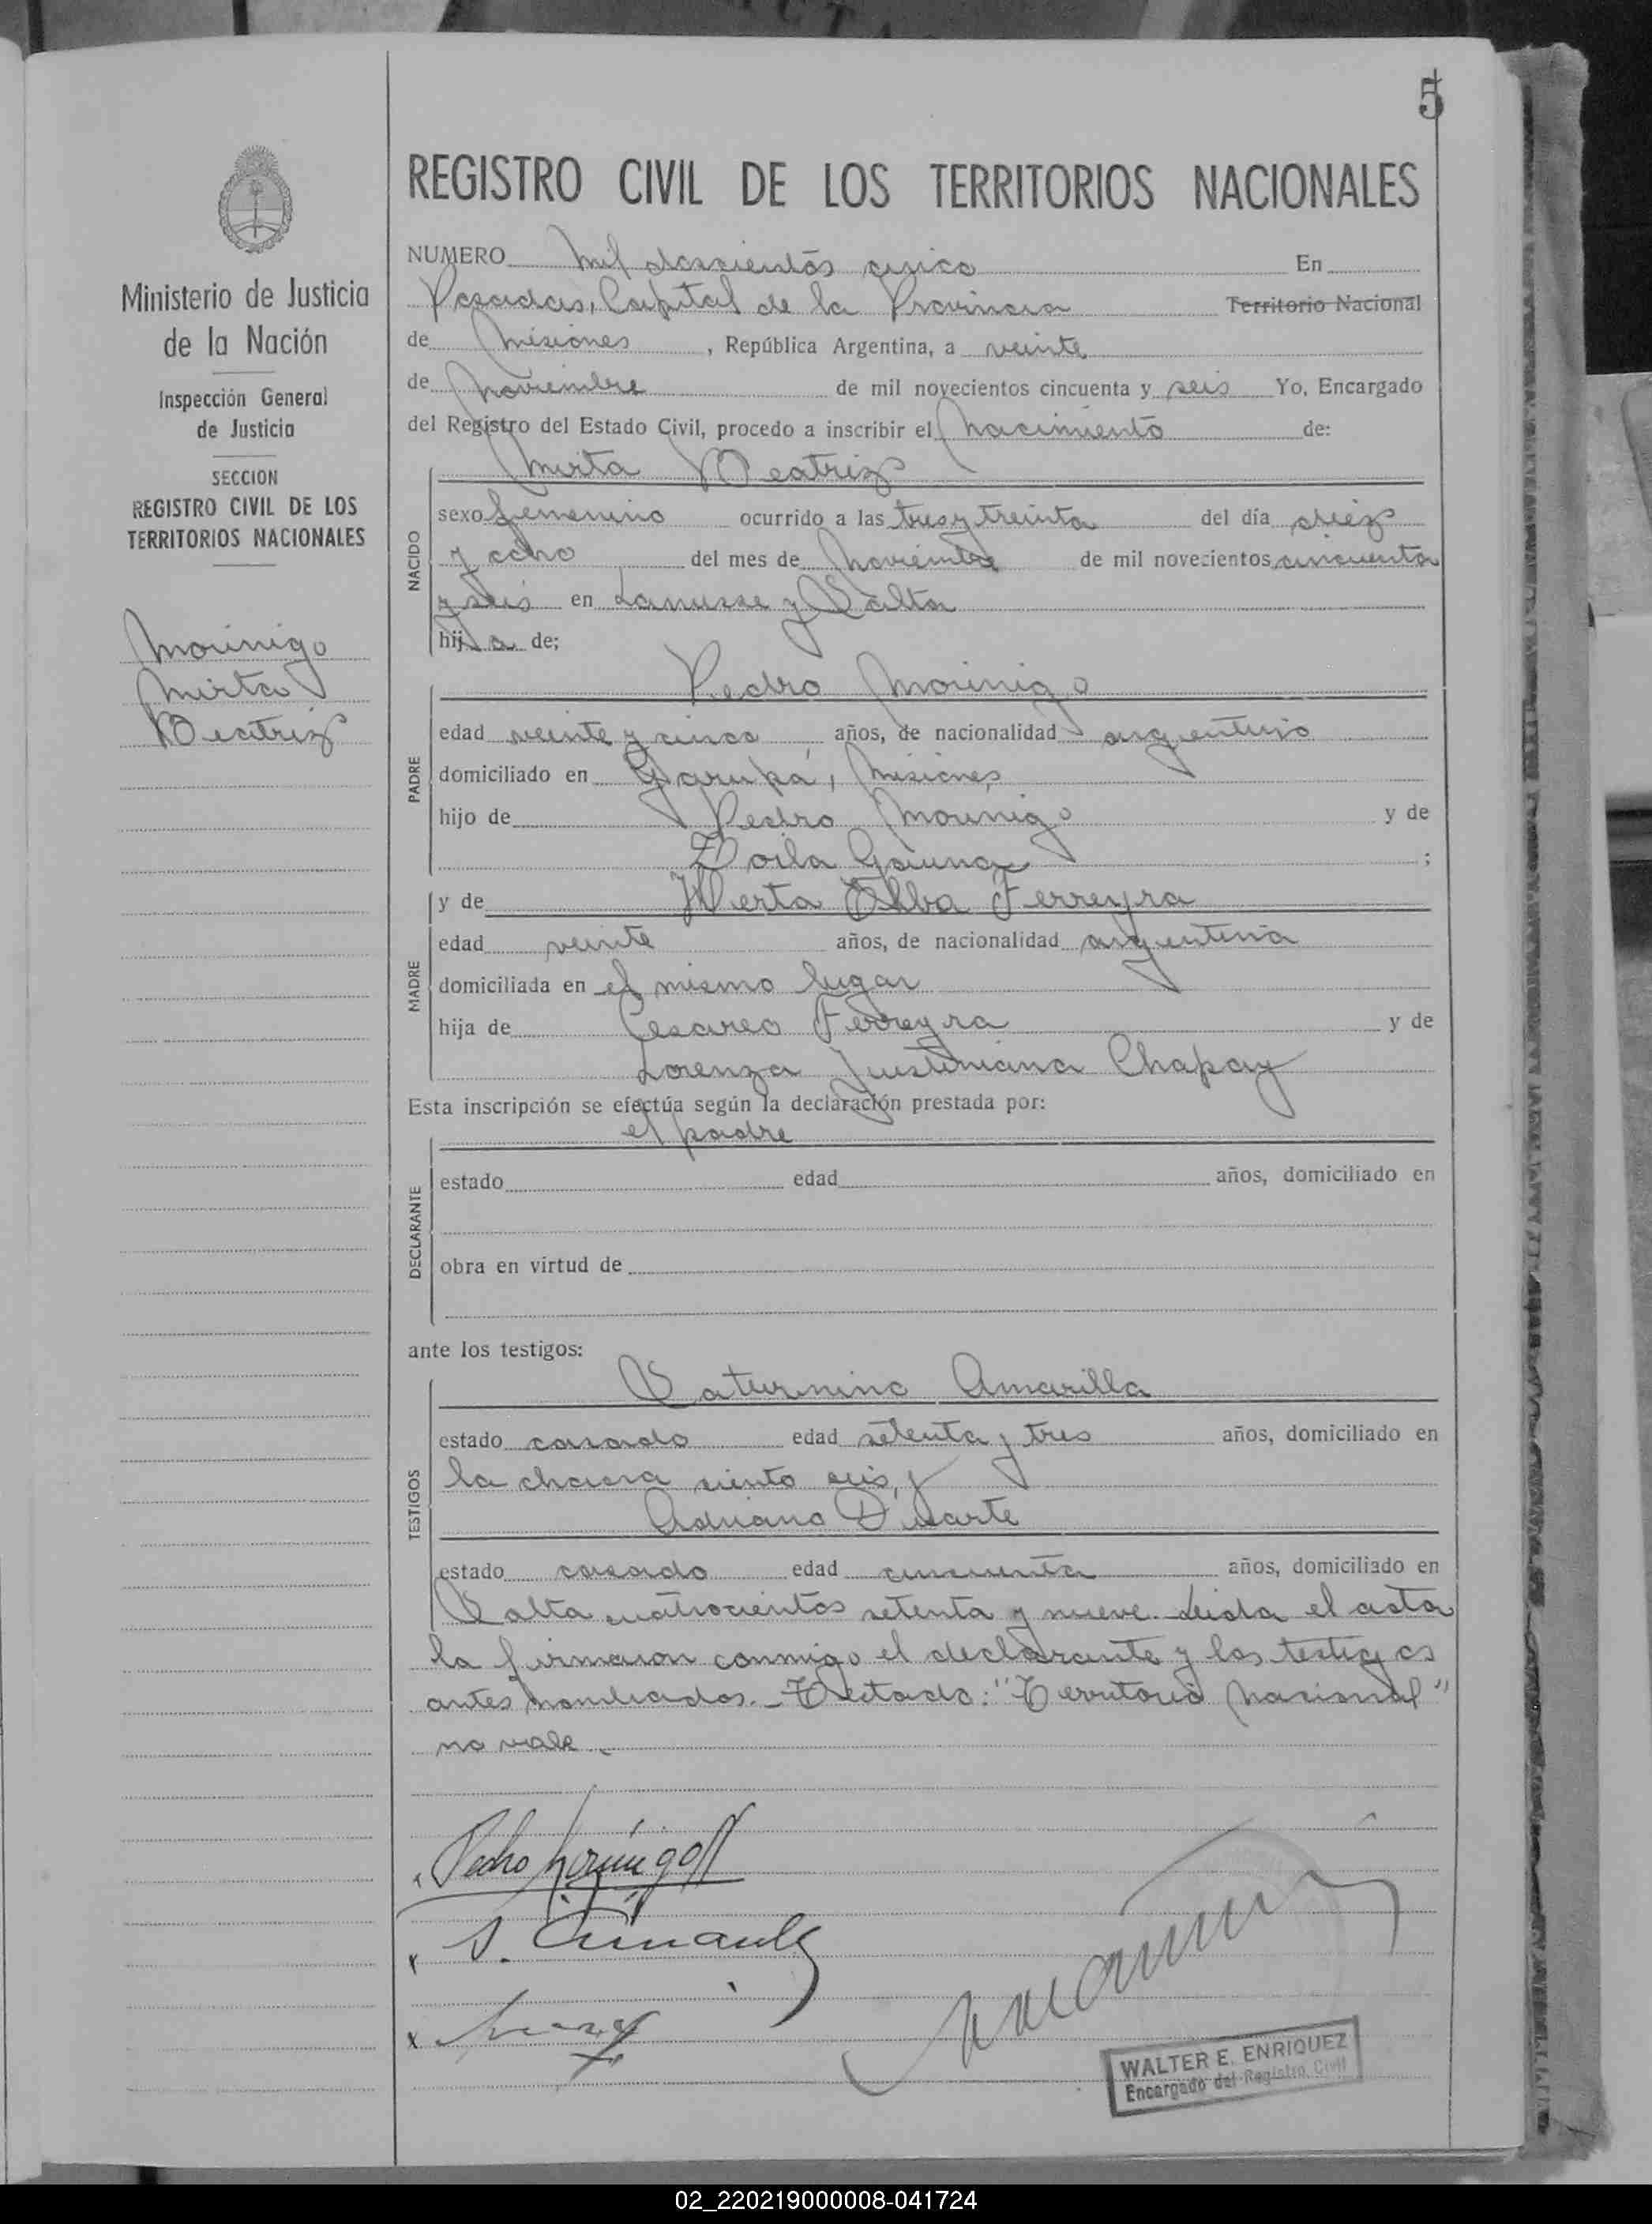 5
REGISTRO CIVIL DE LOS TERRITORIOS NACIONALES
Ministerio de Justicia
de la Nación
Inspección General
de Justicia
SECCION
REGISTRO CIVIL DE LOS
TERRITORIOS NACIONALES
Mourigo
Mirta
Beatriz
NUMERO Mil doscientos cinco En
Posadas, Capital de la Provincia Territorio Nacional
de Misiones, República Argentina, a veinte
de Noviembre de mil novecientos cincuenta y seis Yo, Encargado
del Registro del Estado Civil, procedo a inscribir el Nacimiento de:
NACIDO
Mirta Beatriz
sexo femenino ocurrido a las tres y treinta del día diez
y ocho del mes de Noviembre de mil novecientos cincuenta
y seis en Lanusse y Salta
hija de;
PADRE
Pedro Mourigo
edad veinte y cinco años, de nacionalidad argentino
domiciliado en Garupá, Misiones
hijo de Pedro Mourigo y de
Zoila Gauna ;
MADRE
y de Herta Elba Ferreyra
edad veinte años, de nacionalidad argentina
domiciliada en el mismo lugar
hija de Cesareo Ferreyra y de
Lorenza Justiniana Chapay
Esta inscripción se efectúa según la declaración prestada por:
DECLARANTE
el padre
estado edad años, domiciliado en
obra en virtud de
ante los testigos:
TESTIGOS
Saturnino Amarilla
estado casado edad setenta y tres años, domiciliado en
la chacra siento seis, y
Adriano Duarte
estado casado edad cincuenta años, domiciliado en
Salta cuatrocientos setenta y nueve. Leida el acta
la firmaron conmigo el declarante y los testigos
antes nombrados. - Testado: "Territorio Nacional"
no vale.
WALTER E. ENRIQUEZ
Encargado del Registro Civil
02_220219000008-041724